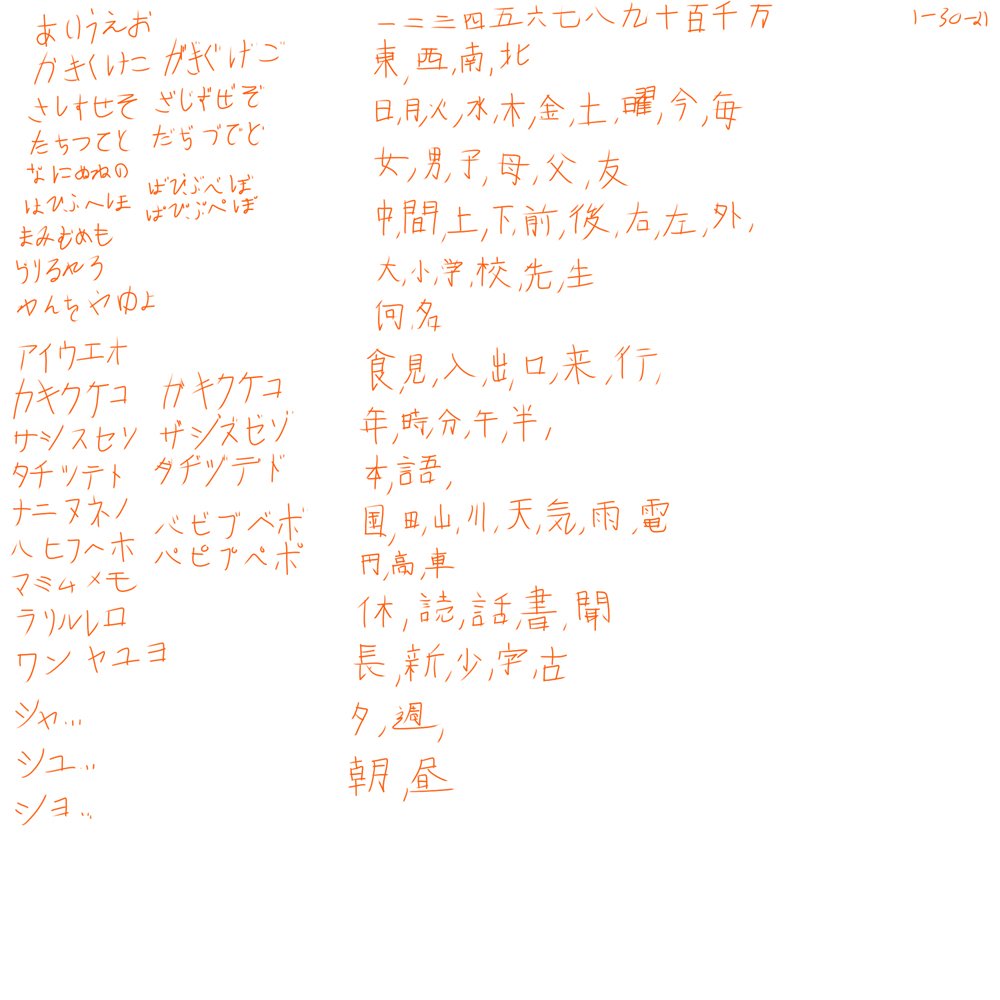 1-30-21
あいうえお
かきくけこ がぎぐげご
さしすせそ ざじずぜぞ
たちつてと だぢづでど
なにぬねの
はひふへほ ばびぶべぼ
ぱぴぷぺぽ
まみむめも
らりるれろ
わんを やゆよ
アイウエオ
カキクケコ ガキクケコ
サシスセソ ザジズゼゾ
タチツテト ダヂヅデド
ナニヌネノ
ハヒフヘホ バビブベボ
パピプペポ
マミムメモ
ラリルレロ
ワン ヤユヨ
シャ...
シュ...
ショ...
一二三四五六七八九十百千万
東,西,南,北
日,月,火,水,木,金,土,曜,今,毎
女,男,子,母,父,友
中,間,上,下,前,後,右,左,外,
大,小,学,校,先,生
何,名
食,見,入,出,口,来,行,
年,時,分,午,半,
本,語,
国,田,山,川,天,気,雨,電
円,高,車
休,読,話,書,聞
長,新,少,字,古
夕,週,
朝,昼